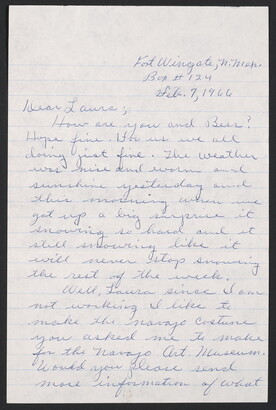 Fort Wingate, N. Mex.
Box # 124
Feb. 7, 1966
Dear Laura;
How are you and Bear?
Hope fine. For us we all
doing just fine. The weather
was nice and worm and
sunshine yesterday and
this morning when we
got up a big surprize it
snowing so hard and it
still snowing like it
will never stop snowing
the rest of the week.
Well, Laura since I am
not working I like to
make the navajo costume
you asked me to make
for the Navajo Art Museum.
Would you please send
more information of what